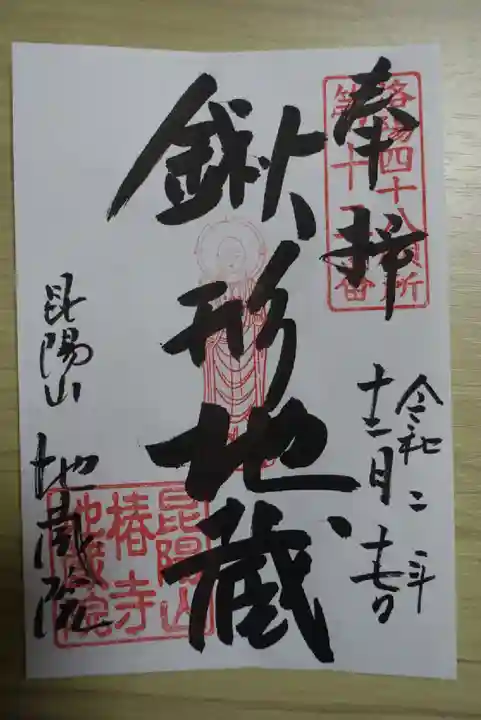 奉拝
洛陽四十八願所
令和二年
十二月十七日
鍬形地蔵
昆陽山
地蔵院
昆陽山
椿寺
地蔵院